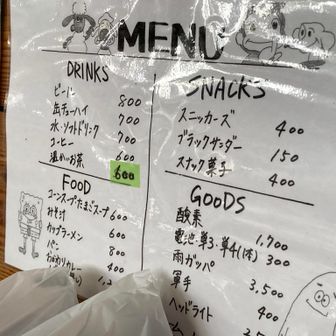 MENU
DRINKS
ビール 800
缶チューハイ 700
水・ソフトドリンク 700
コーヒー 600
温かいお茶 600
FOOD
コーンスープ・たまごスープ 600
みそ汁 600
カップラーメン 800
パン 400
SNACKS
スニッカーズ 400
ブラックサンダー 150
スナック菓子 400
GOODS
酸素 1,700
電池・単3・単4(1本) 300
雨ガッパ 3,500
軍手 400
ヘッドライト